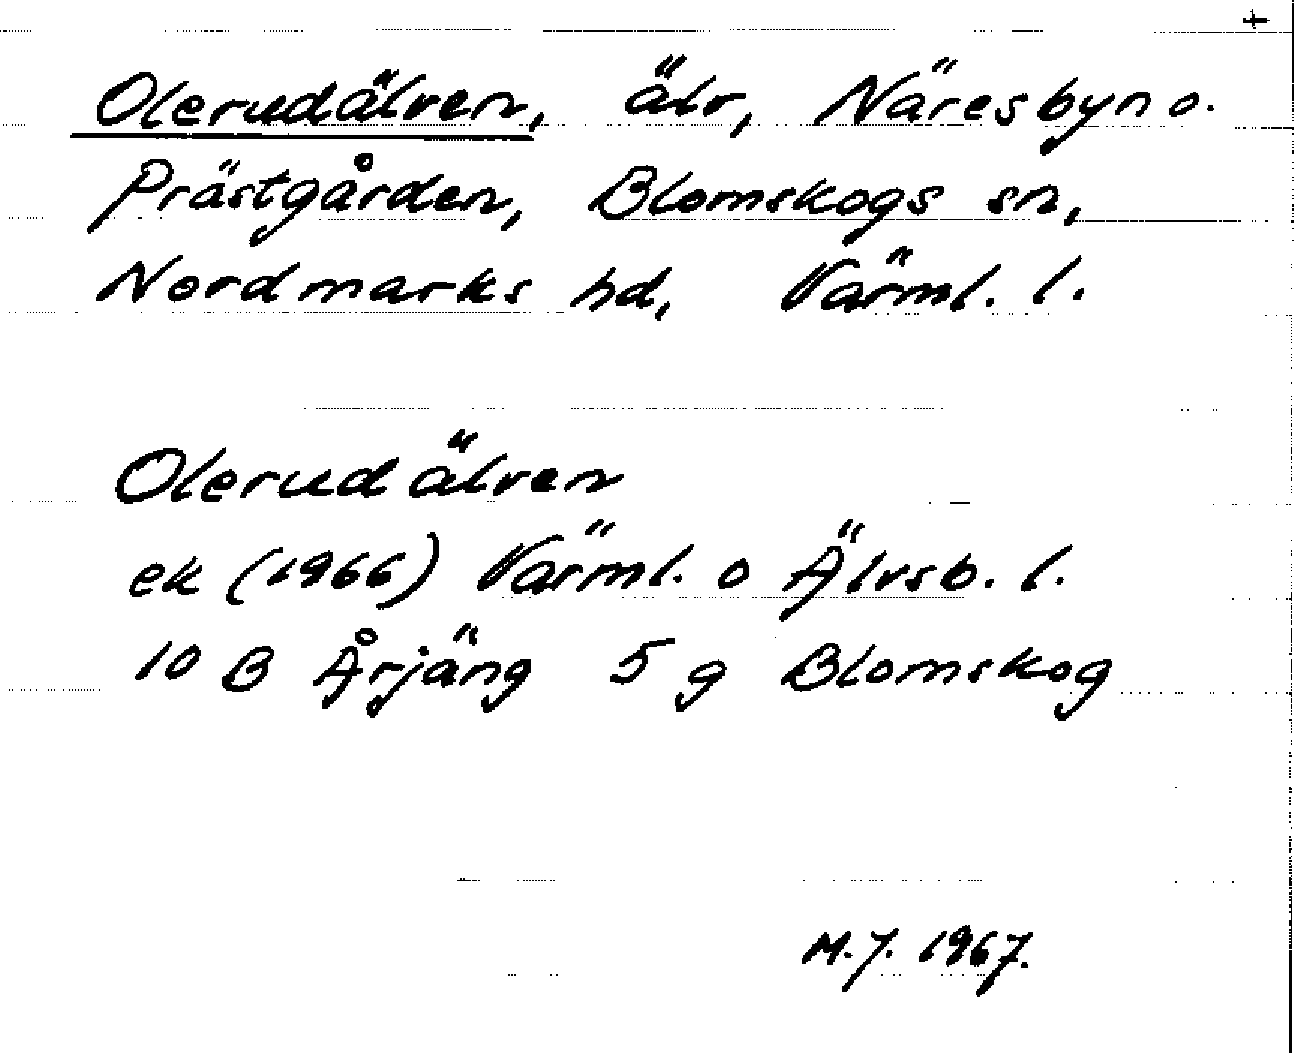 Olerudälven, älv, Näresbyn o.
Prästgården, Blomskogs sn,
Nordmarks hd, Värml. l.
Olerudälven
ek (1966) Värml. o Älvsb. l.
10 B Årjäng 5 g Blomskog
M.J. 1967.